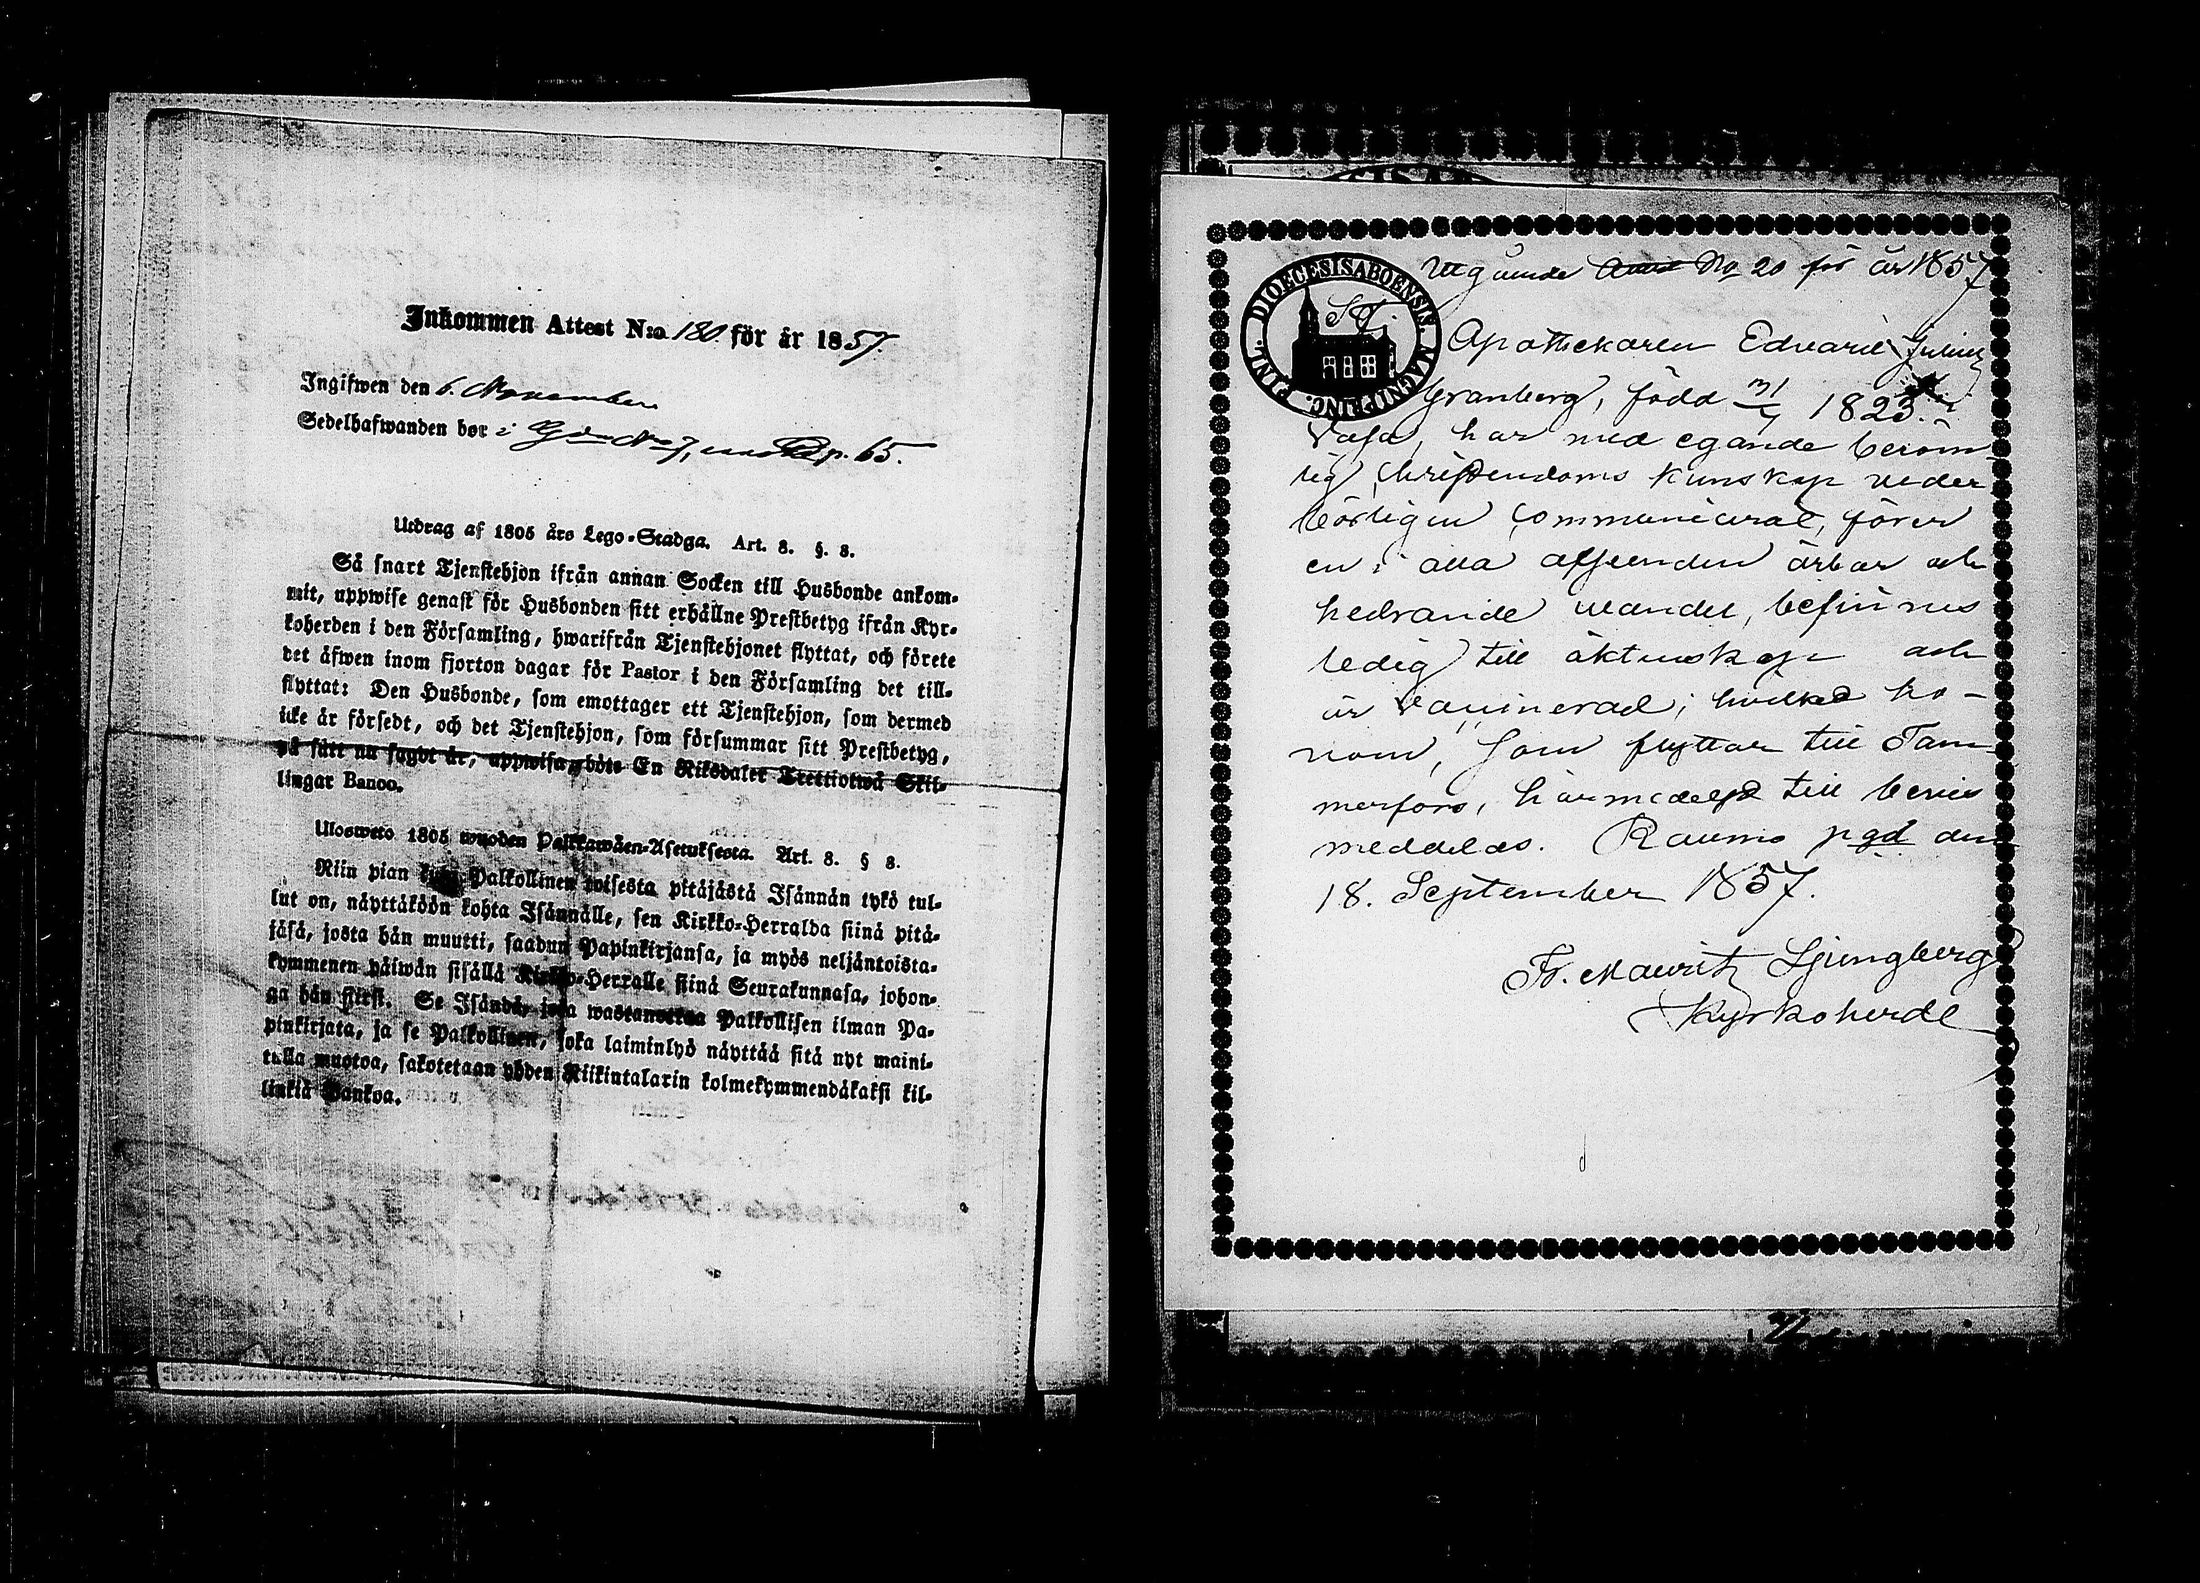 Inkommen Attest N:o 180. för år 1857.
Ingifwen den 6. November
Sedelhafwanden bor i Gården No 7, p. 65.
Utdrag af 1805 års Lego-Stadga. Art. 8. §. 8.
Så snart Tjenstehjon ifrån annan Socken till Husbonde ankom-
mit, uppwise genast för Husbonden sitt erhållne Prestbetyg ifrån Kyr-
koherden i den Församling, hwarifrån Tjenstehjonet flyttat, och förete
det äfwen inom fjorton dagar för Pastor i den Församling det till-
flyttat: Den Husbonde, som emottager ett Tjenstehjon, som dermed
icke är försedt, och det Tjenstehjon, som försummar sitt Prestbetyg,
på sätt nu sagdt är, uppwisa, böte En Riksdaler Trettiotwå Skil-
lingar Banco.
Ulosweto 1805 wuoden Palkkawäen-Asetuksesta. Art. 8. § 8.
Niin pian kuin Palkollinen toisesta pitäjästä Isännän tykö tul-
lut on, näyttäköön kohta Isännälle, sen Kirkko-Herralda siinä pitä-
jäsä, josta hän muutti, saadun Papinkirjansa, ja myös neljäntoista-
kymmenen päiwän sisällä Kirkko-Herralle siinä Seurakunnasa, johon-
ga hän siirsi. Se Isändä, joka wastanottaa Palkollisen ilman Pa-
pinkirjata, ja se Palkollinen, joka laiminlyö näyttää sitä nyt maini-
tulla muotoa, sakotetaan yhden Riikintalarin kolmekymmendäkaksi kil-
linkiä Bankoa.
DIOECESIS ABOENSIS. MAGNI PRINC. FINL.
Utgående Attest No 20 för år 1857
Apothekaren Edvard Julius
Granberg, född 31/7 1823 i
Vasa, har med egande beröm-
lig Christendoms kunskap veder
börligen communicerat, förer
en i alla afseenden ärbar och
hedrande vandel, befinnes
ledig till äktenskap och
är vaccinerad; hvilket ho-
nom, som flyttar till Tam-
merfors, härmedelst till bevis
meddelas. Raumo pgd den
18. September 1857.
Fr. Mauritz Ljungberg
Kyrkoherde